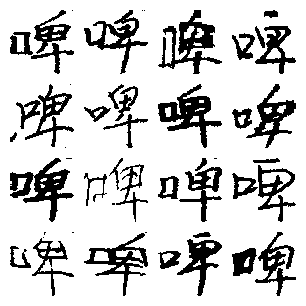 啤啤啤啤
啤啤啤啤
啤啤啤啤
啤啤啤啤